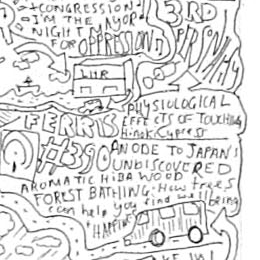 +CONGRESSION-
-I'M THE MAYOR
NIGHT
FOR OPPRESSION
3RD
PERSON
PHYSIOLOGICAL
FERRIS EFFECTS OF TOUCHING
Hinoki Cypress
#390 AN ODE TO JAPAN'S
UNDISCOVERED
AROMATIC HIBA WOOD
FOREST BATHING: How trees
can help you find well being
HAPPINESS